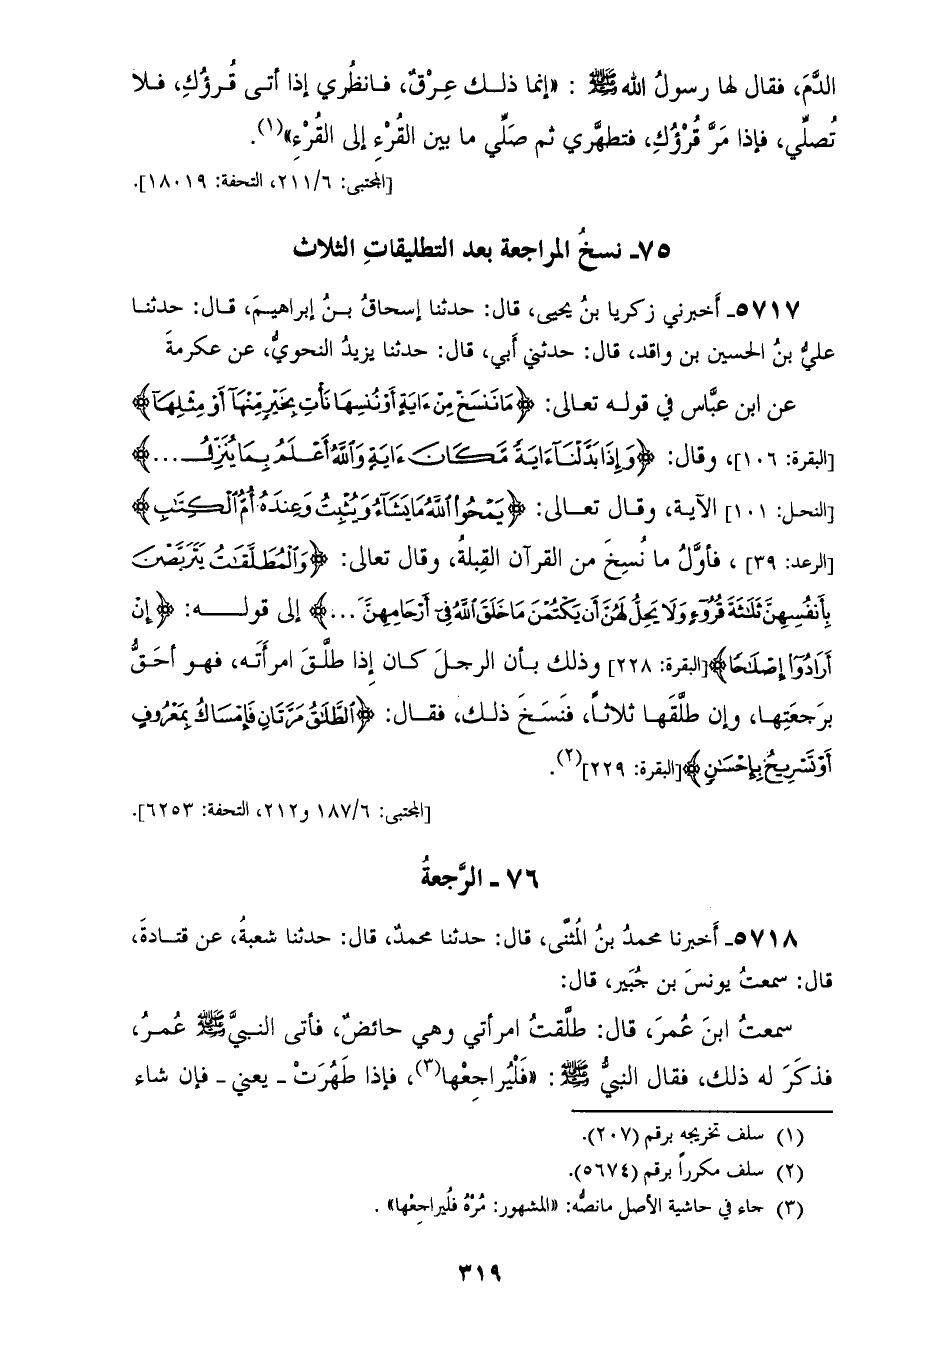 الدَّمَ، فقال لها رسولُ الله ﷺ : «إنما ذلـك عِرْقٌ، فـانظُري إذا أتـى قُـرؤُكِ، فـلا
تُصلِّي، فإذا مَرَّ قُرْؤُكِ، فتطهَّري ثم صَلِّي ما بين القُرْءِ إلى القُرْءِ»(١).
[المجتبى: ٢١١/٦، التحفة: ١٨٠١٩].
٧٥ـ نسخُ المراجعة بعد التطليقاتِ الثلاث
٥٧١٧ـ أَخبرني زكريا بنُ يحيى، قال: حدثنا إسحاقُ بـنُ إبراهيـمَ، قـال: حدثنـا
عليُّ بنُ الحسين بن واقد، قال: حدثني أَبي، قال: حدثنا يزيدُ النحويُّ، عن عكرمةَ
عن ابن عبَّاس في قولـه تعـالى: ﴿مَا نَنسَخْ مِنْ ءَايَةٍ أَوْ نُنسِهَا نَأْتِ بِخَيْرٍ مِّنْهَآ أَوْ مِثْلِهَآ﴾
[البقرة: ١٠٦]، وقال: ﴿وَإِذَا بَدَّلْنَآ ءَايَةً مَّكَانَ ءَايَةٍ وَٱللَّهُ أَعْلَمُ بِمَا يُنَزِّلُ ...﴾
[النحل: ١٠١] الآية، وقـال تعـالى: ﴿يَمْحُوا۟ ٱللَّهُ مَا يَشَآءُ وَيُثْبِتُ وَعِندَهُۥٓ أُمُّ ٱلْكِتَٰبِ﴾
[الرعد: ٣٩] ، فأوَّلُ ما نُسِخَ من القرآن القِبلةُ، وقال تعالى: ﴿وَٱلْمُطَلَّقَٰتُ يَتَرَبَّصْنَ
بِأَنفُسِهِنَّ ثَلَٰثَةَ قُرُوٓءٍ وَلَا يَحِلُّ لَهُنَّ أَن يَكْتُمْنَ مَا خَلَقَ ٱللَّهُ فِىٓ أَرْحَامِهِنَّ ...﴾ إلى قولـــه: ﴿إِنْ
أَرَادُوٓا۟ إِصْلَٰحًا﴾[البقرة: ٢٢٨] وذلك بـأن الرجـلَ كـان إذا طلَّـقَ امرأَتَـه، فهـو أحَـقُّ
برَجعَتِهـا، وإن طلَّقَهـا ثلاثـاً، فنَسَـخَ ذلـك، فقـال: ﴿ٱلطَّلَٰقُ مَرَّتَانِ فَإِمْسَاكٌۢ بِمَعْرُوفٍ
أَوْ تَسْرِيحٌۢ بِإِحْسَٰنٍ﴾[البقرة: ٢٢٩](٢).
[المجتبى: ١٨٧/٦ و٢١٢، التحفة: ٦٢٥٣].
٧٦ ـ الرَّجعةُ
٥٧١٨ـ أَخبرنا محمدُ بنُ المُثنَّى، قال: حدثنا محمدٌ، قال: حدثنا شعبةُ، عن قتـادةَ،
قال: سمعتُ يونسَ بن جُبَير، قال:
سمعتُ ابنَ عُمرَ، قال: طلَّقتُ امرأتي وهي حائضٌ، فأتى النـبيَّ ﷺ عُمـرُ،
فذكَرَ له ذلك، فقال النبيُّ ﷺ: «فَلْيُراجِعْها(٣)، فإذا طَهُرَتْ ـ يعني ـ فإن شاء
(١) سلف تخريجه برقم (٢٠٧).
(٢) سلف مكرراً برقم (٥٦٧٤).
(٣) جاء في حاشية الأصل مانصُّه: «المشهور: مُرْهُ فلْيراجِعْها» .
٣١٩